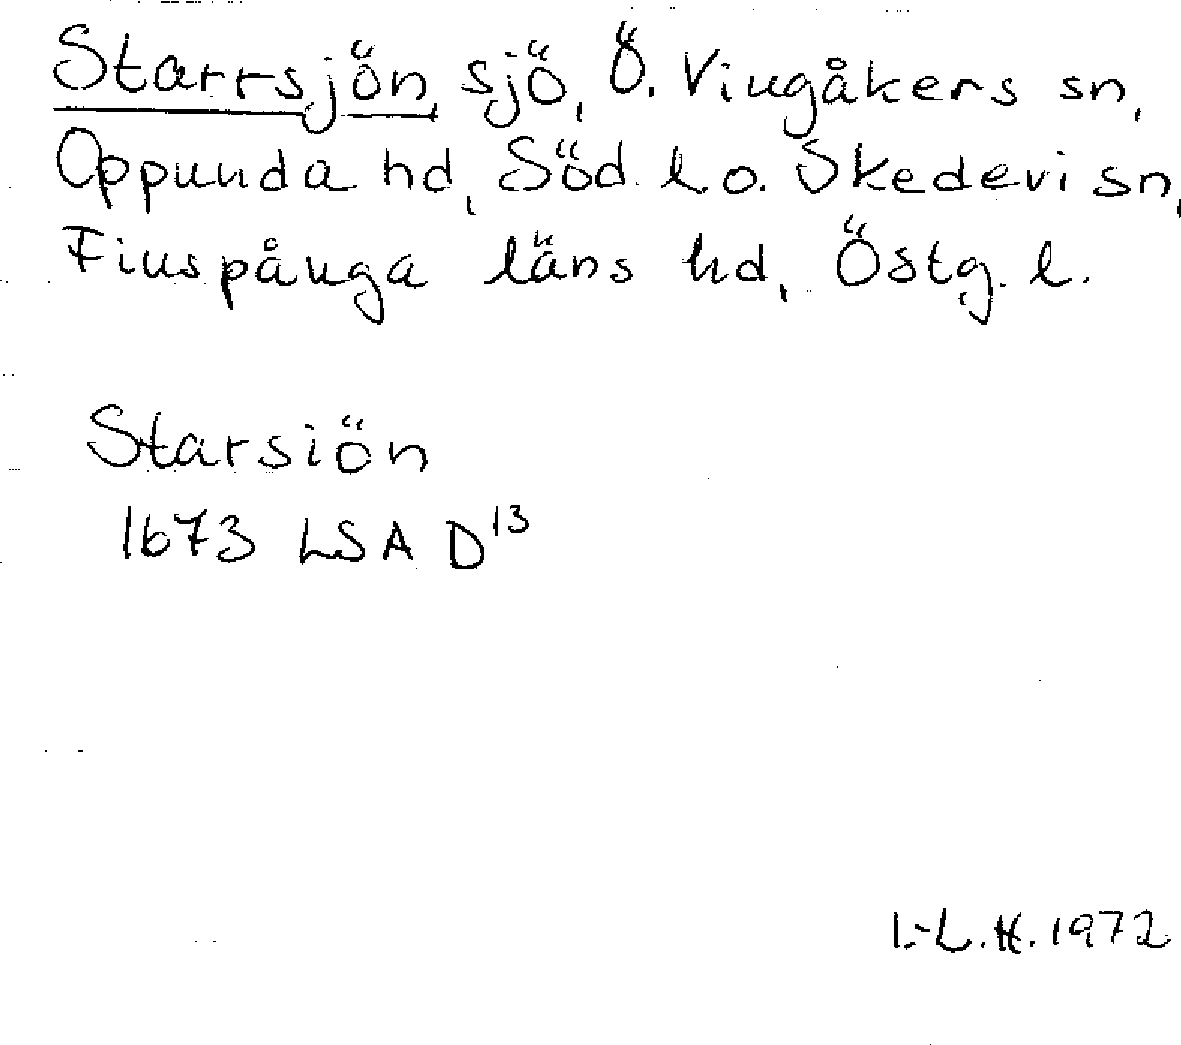 Starrsjön sjö, Ö. Vingåkers sn,
Oppunda hd, Söd. l o. Skedevi sn,
Finspånga läns hd, Östg. l.
Starsiön
1673 LSA D¹³
I.-L.H. 1972